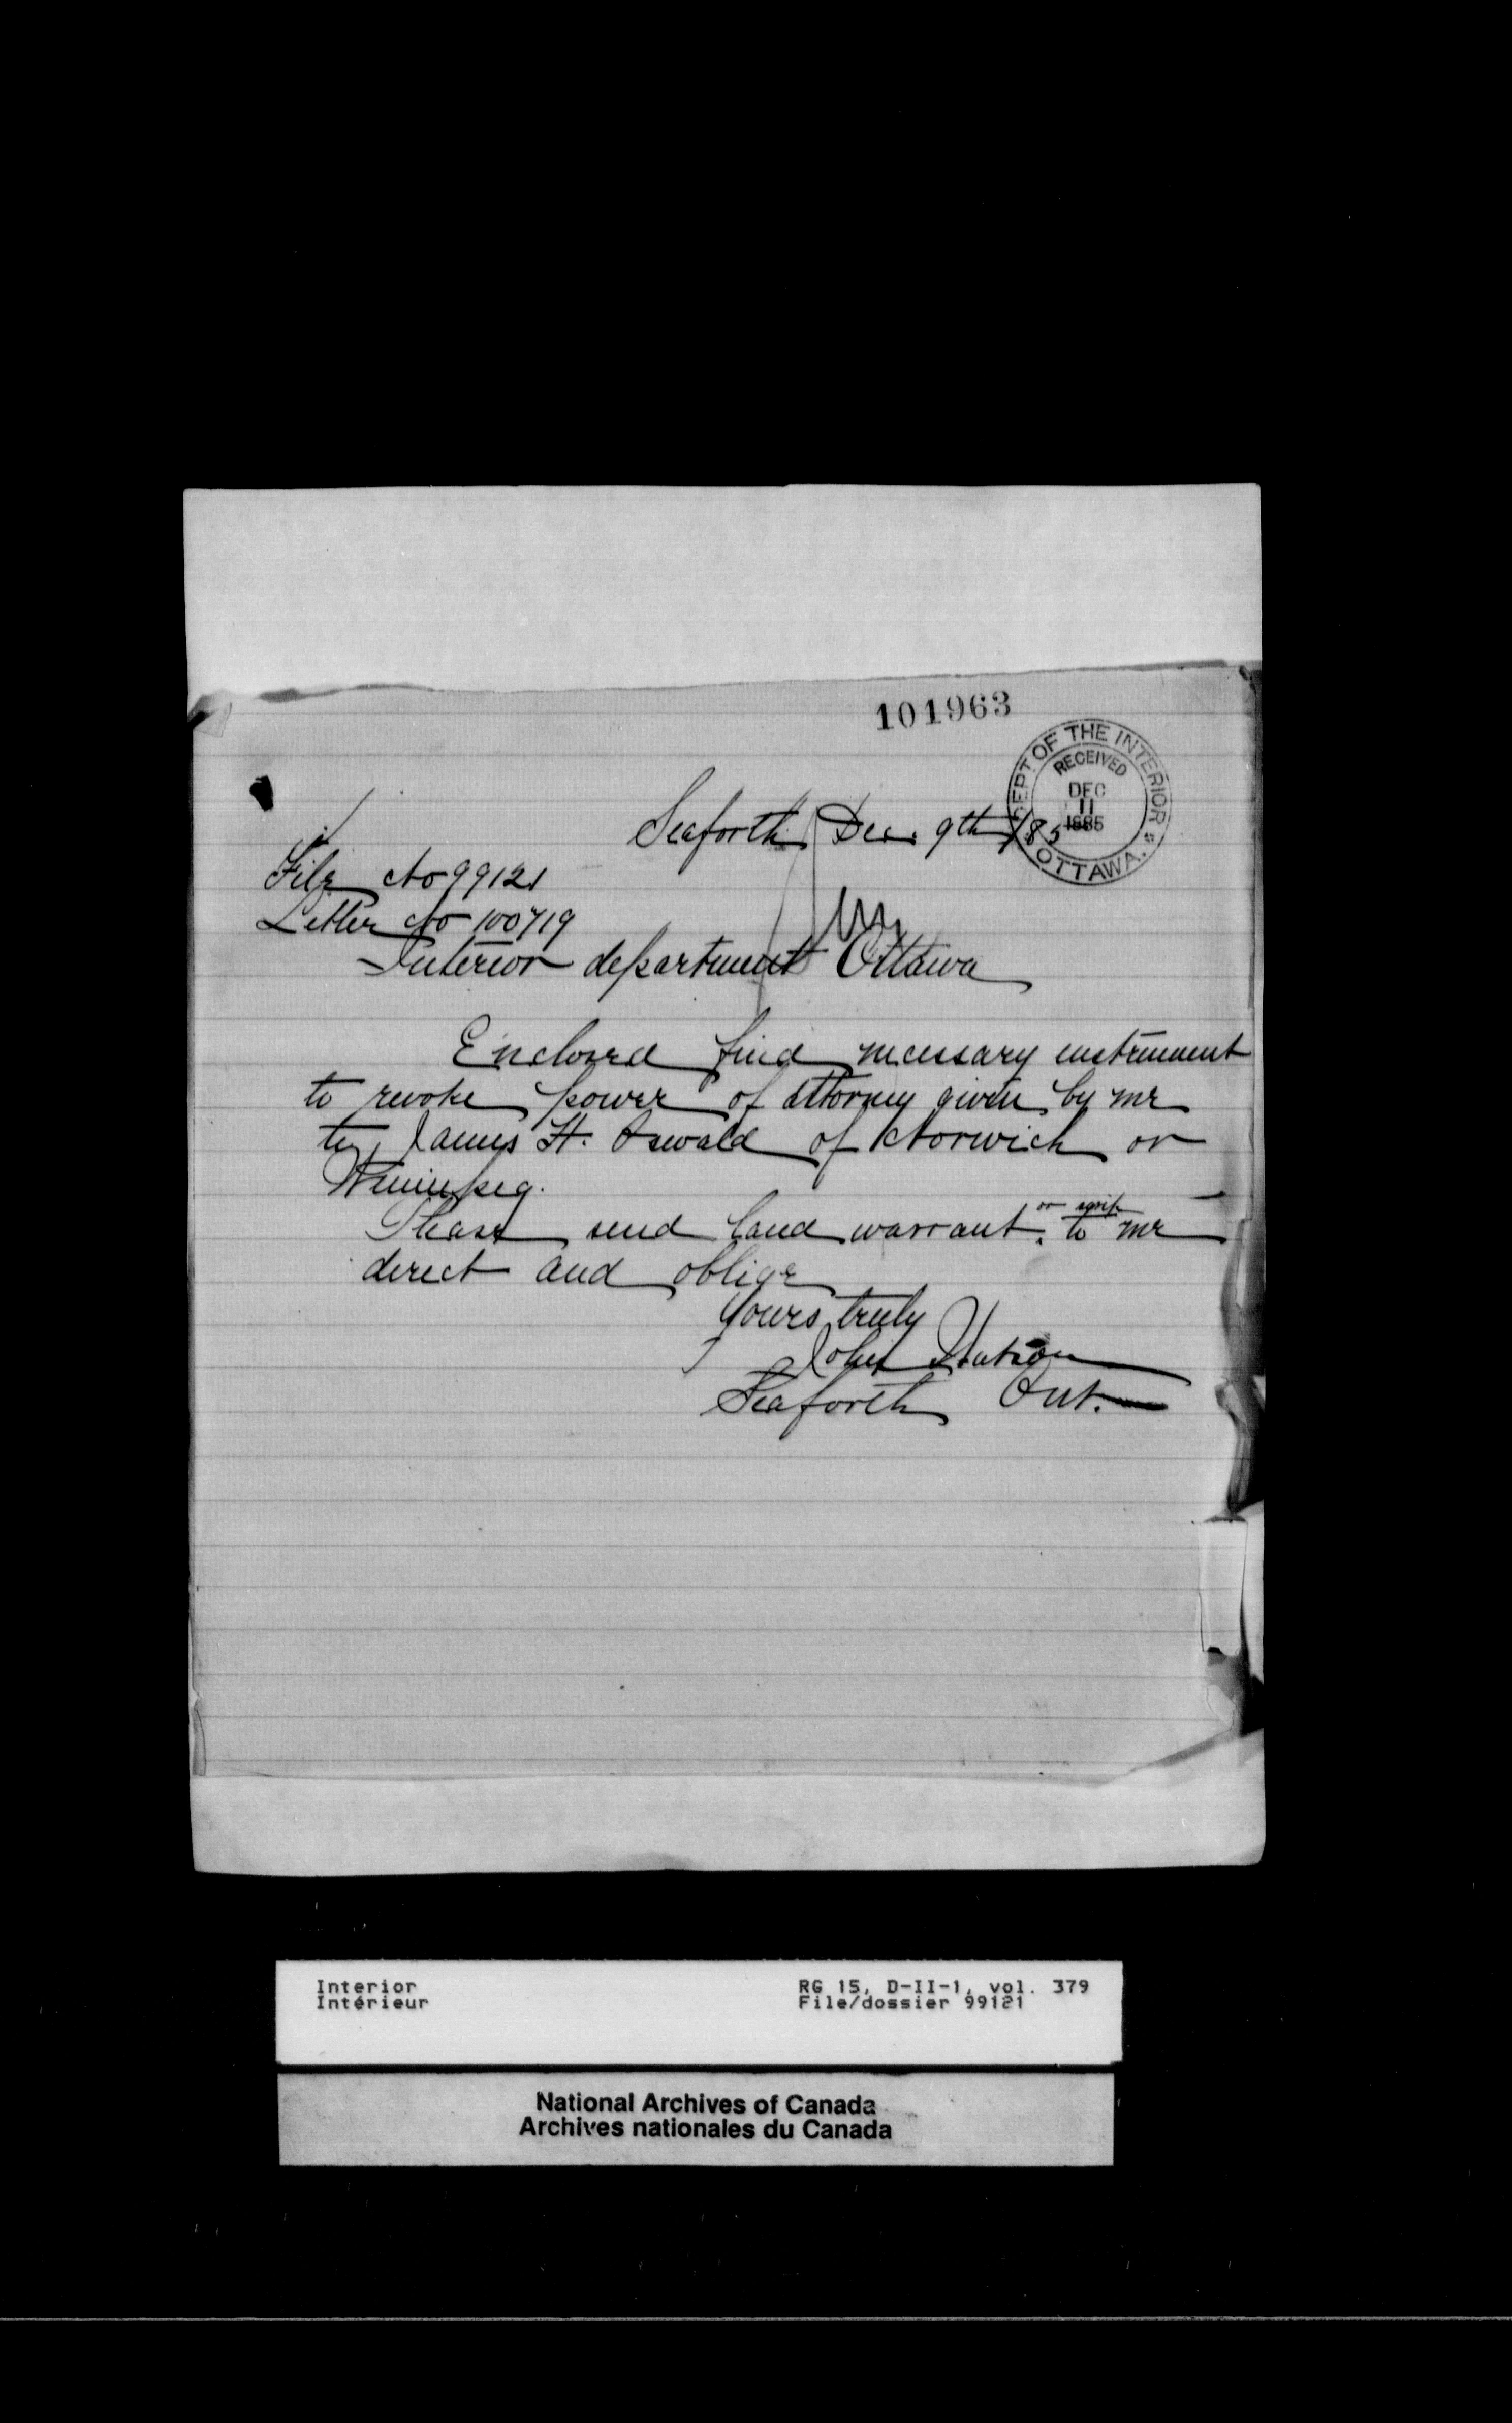 101963
DEPT OF THE INTERIOR
RECEIVED
DEC
11
1885
OTTAWA.
Seaforth Dec. 9th /85
File No 99121
Letter No 100719
Interior department Ottawa
Enclosed find necessary instrument
to revoke power of attorney given by me
to James H. Oswald of Norwich or
Winnipeg.
or scrip
Please send land warrant to me
direct and oblige
Yours truly
John Watson
Seaforth Ont.
Interior
Intérieur
RG 15, D-II-1, vol. 379
File/dossier 99121
National Archives of Canada
Archives nationales du Canada